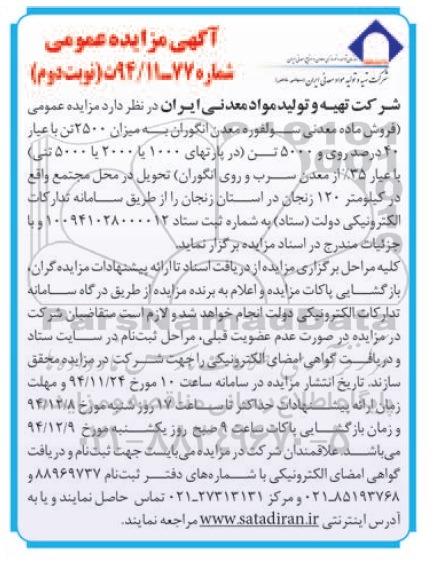 آگهی مزایده عمومی
شماره ۷۷-۹۴/۱۱ت (نوبت دوم)
شرکت تهیه و تولید مواد معدنی ایران
شرکت تهیه و تولید مواد معدنی ایران در نظر دارد مزایده عمومی
(فروش ماده معدنی سولفوره معدن انگوران به میزان ۲۵۰۰تن با عیار
۴۰ درصد روی و ۵۰۰۰ تن (در پارتهای ۱۰۰۰ یا ۲۰۰۰ یا ۵۰۰۰ تنی)
با عیار ۳۵٪ از معدن سرب و روی انگوران) تحویل در محل مجتمع واقع
در کیلومتر ۱۲۰ زنجان در استان زنجان را از طریق سامانه تدارکات
الکترونیکی دولت (ستاد) به شماره ثبت ستاد ۱۰۰۹۴۱۰۲۸۰۰۰۰۱۲ و با
جزئیات مندرج در اسناد مزایده برگزار نماید.
کلیه مراحل برگزاری مزایده از دریافت اسناد تا ارائه پیشنهادات مزایده گران،
بازگشایی پاکات مزایده و اعلام به برنده مزایده از طریق درگاه سامانه
تدارکات الکترونیکی دولت انجام خواهد شد و لازم است متقاضیان شرکت
در مزایده در صورت عدم عضویت قبلی، مراحل ثبت‌نام در سایت ستاد
و دریافت گواهی امضای الکترونیکی را جهت شرکت در مزایده محقق
سازند. تاریخ انتشار مزایده در سامانه ساعت ۱۰ مورخ ۹۴/۱۱/۲۴ و مهلت
زمان ارائه پیشنهادات حداکثر تا ساعت ۱۲ روز شنبه مورخ ۹۴/۱۲/۸
و زمان بازگشایی پاکات ساعت ۹ صبح روز یکشنبه مورخ ۹۴/۱۲/۹
می‌باشد. علاقمندان شرکت در مزایده می‌بایست جهت ثبت‌نام و دریافت
گواهی امضای الکترونیکی با شماره‌های دفتر ثبت‌نام ۸۸۹۶۹۷۳۷ و
۸۵۱۹۳۷۶۸-۰۲۱ و مرکز ۲۷۳۱۳۱۳۱-۰۲۱ تماس حاصل نمایند و یا به
آدرس اینترنتی www.satadiran.ir مراجعه نمایند.
ParsNamadData